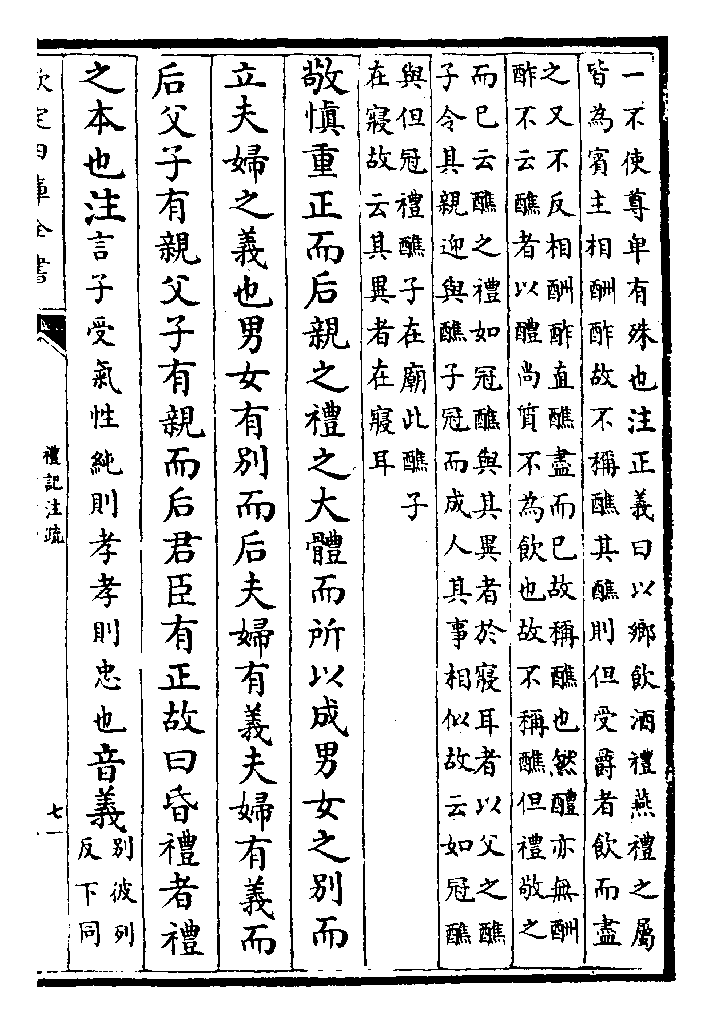 一不使尊卑有殊也注正義曰以鄉飲酒禮燕禮之屬
皆為賓主相酬酢故不稱醮其醮則但受爵者飲而盡
之又不反相酬酢直醮盡而已故稱醮也然醴亦無酬
酢不云醮者以醴尚質不為飲也故不稱醮但禮敬之
而已云醮之禮如冠醮與其異者於寢耳者以父之醮
子令其親迎與醮子冠而成人其事相似故云如冠醮
與但冠禮醮子在廟此醮子
在寢故云其異者在寢耳
敬慎重正而后親之禮之大體而所以成男女之別而
立夫婦之義也男女有別而后夫婦有義夫婦有義而
后父子有親父子有親而后君臣有正故曰昏禮者禮
之本也注言子受氣性純則孝孝則忠也音義別彼列
反下同
欽定四庫全書
禮記注疏
七